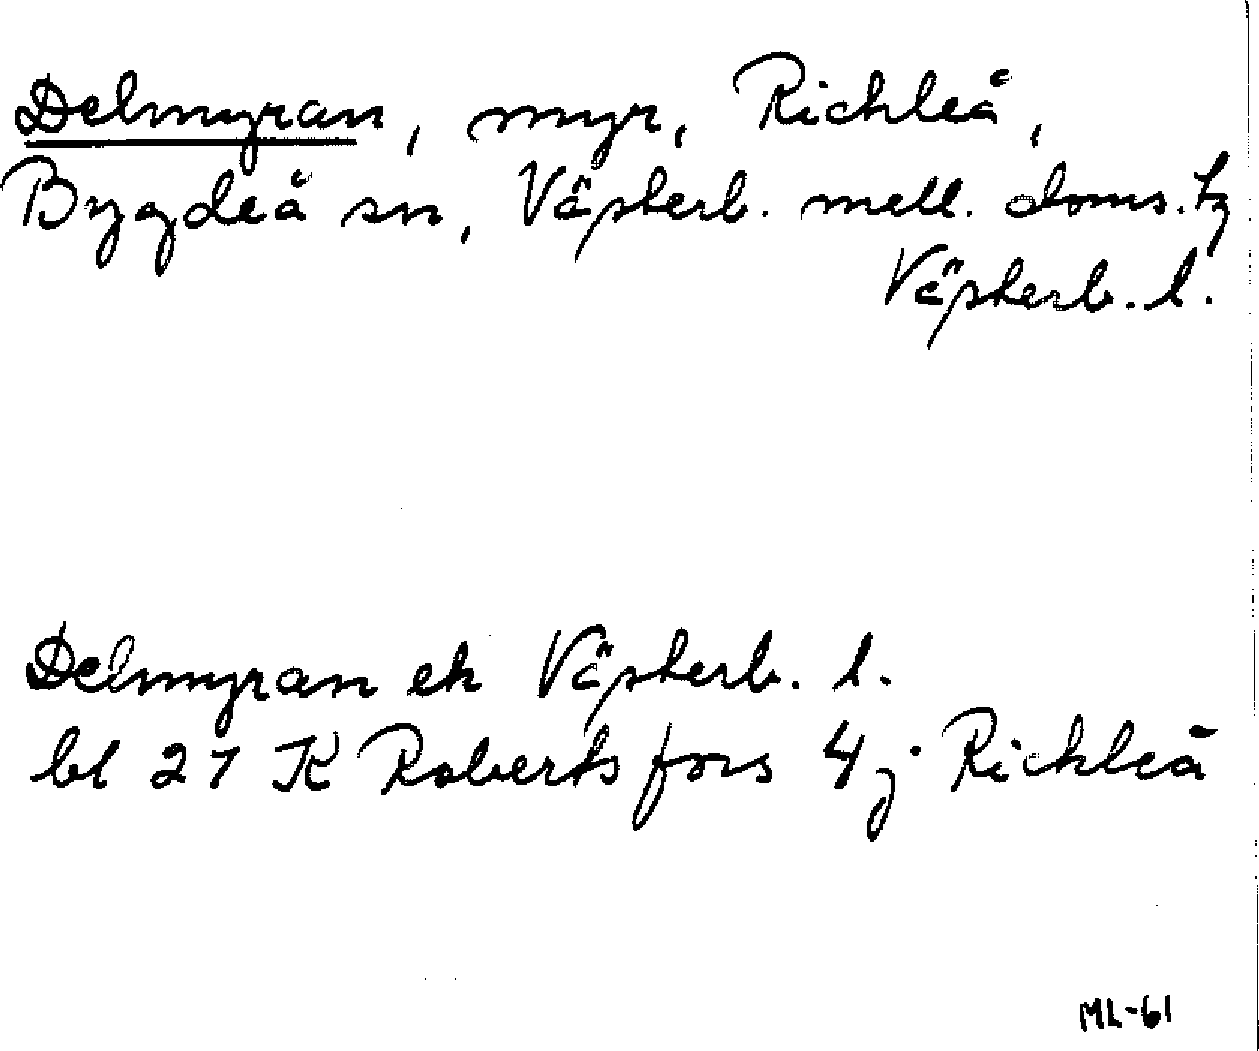 Delmyran, myr, Rickleå,
Bygdeå sn, Västerb. mell. doms. tg
Västerb. l.
Delmyran ek Västerb. l.
bl 27 K Robertsfors 4 j Rickleå
ML-61